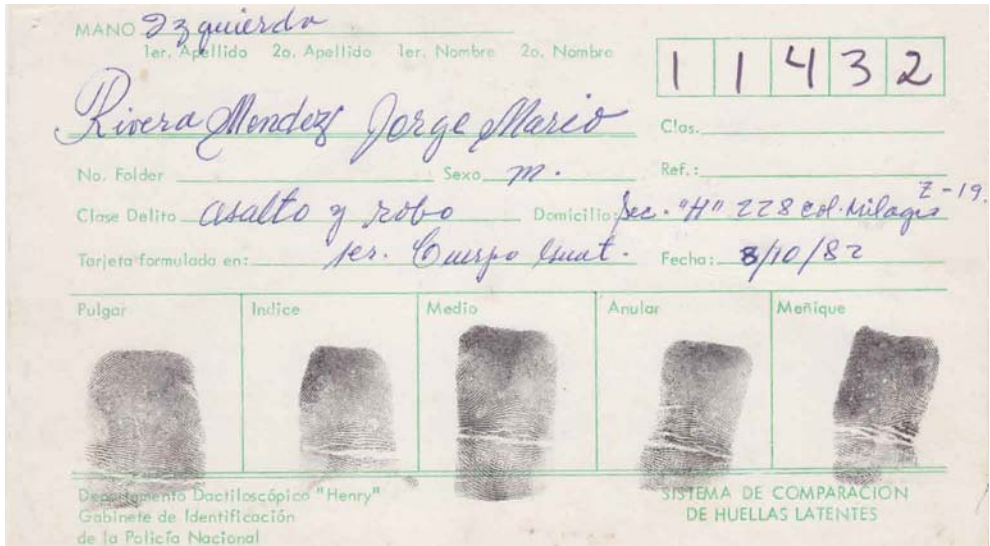 MANO Izquierda
1er. Apellido 2o. Apellido 1er. Nombre 2o. Nombre
1 1 4 3 2
Rivera Mendez Jorge Mario
Clas.
No. Folder Sexo m. Ref.:
Z-19.
Clase Delito asalto y robo Domicilio: sec. "H" 228 col. Milagro
Tarjeta formulada en: 1er. Cuerpo Guat. Fecha: 8/10/82
Pulgar Indice Medio Anular Meñique
Departamento Dactiloscópico "Henry"
Gabinete de Identificación
de la Policía Nacional
SISTEMA DE COMPARACION
DE HUELLAS LATENTES